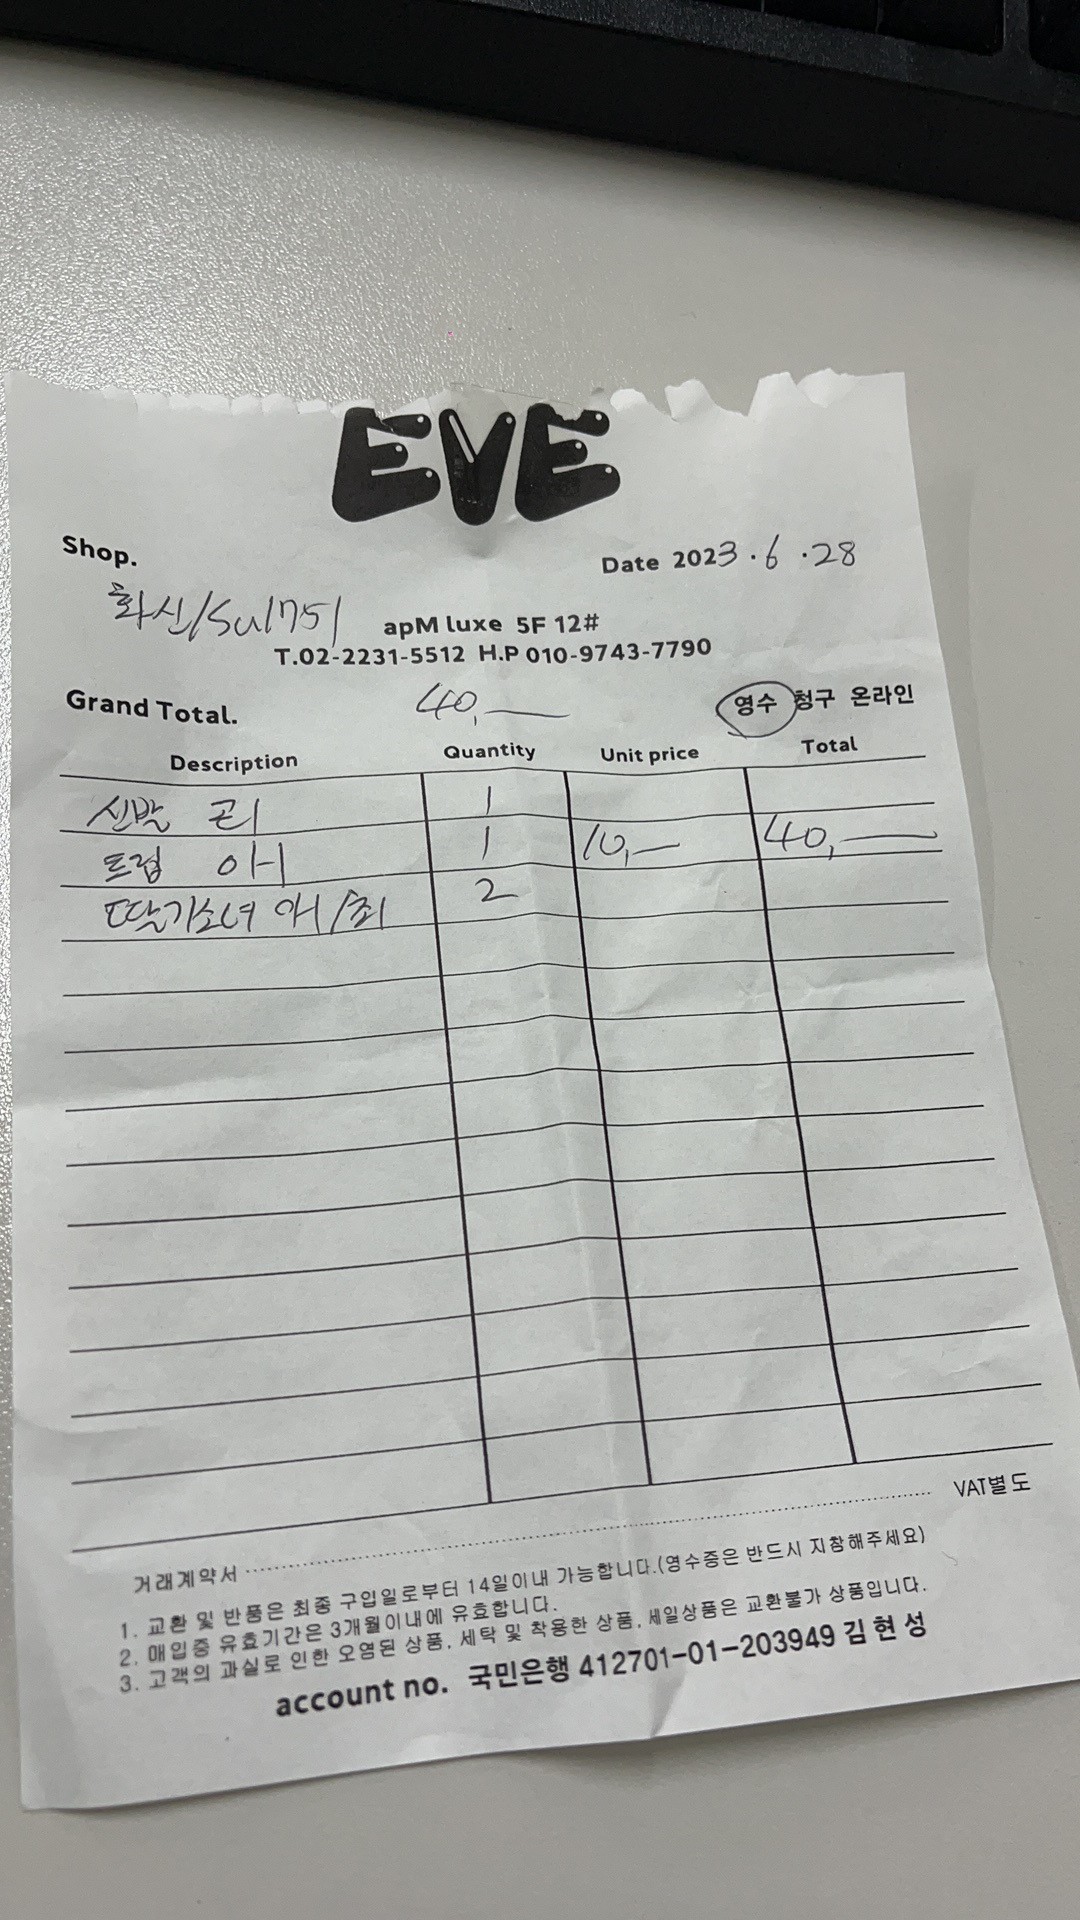 EVE
Shop.
Date 2023.6.28
화신/Su1751
apM luxe 5F 12#
T.02-2231-5512 H.P 010-9743-7790
Grand Total. 40,— 영수 청구 온라인
Description Quantity Unit price Total
신발 곤 1
트럽 아 1 10,— 40,—
딸기소녀 아/최 2
VAT별도
거래계약서
1. 교환 및 반품은 최종 구입일로부터 14일이내 가능합니다.(영수증은 반드시 지참해주세요)
2. 매입중 유효기간은 3개월이내에 유효합니다.
3. 고객의 과실로 인한 오염된 상품, 세탁 및 착용한 상품, 세일상품은 교환불가 상품입니다.
account no. 국민은행 412701-01-203949 김현성